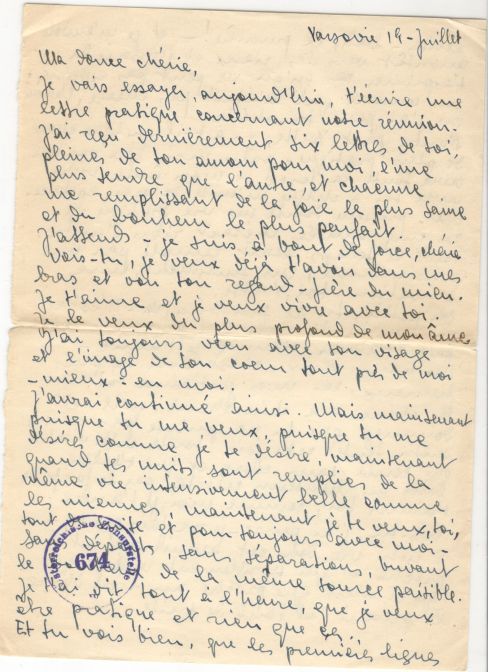 Varsovie 19 - Juillet
Ma douce chérie,
Je vais essayer, aujourd'hui, t'écrire une
lettre pratique concernant notre réunion.
J'ai reçu dernièrement six lettres de toi,
pleines de ton amour pour moi, l'une
plus tendre que l'autre, et chacune
me remplissant de la joie la plus saine
et du bonheur le plus parfait.
J'attends - je suis à bout de force, chérie
Vois-tu, je veux déjà t'avoir dans mes
bras et voir ton regard - frère du mien.
Je t'aime et je veux vivre avec toi.
Je le veux du plus profond de mon âme
J'ai toujours vécu avec ton visage
et l'image de ton coeur tout près de moi
- mieux - en moi.
J'aurai continué ainsi. Mais maintenant
puisque tu me veux, puisque tu me
désires comme je te désire, maintenant
quand tes nuits sont remplies de la
même vie intensivement belle comme
les miennes, maintenant je te veux, toi,
tout de suite et pour toujours avec moi -
sans départs, sans séparations, buvant
le de la même source paisible.
Je t'ai dit tout à l'heure, que je veux
être pratique et rien que ça.
Et tu vois bien, que les premières lignes
674